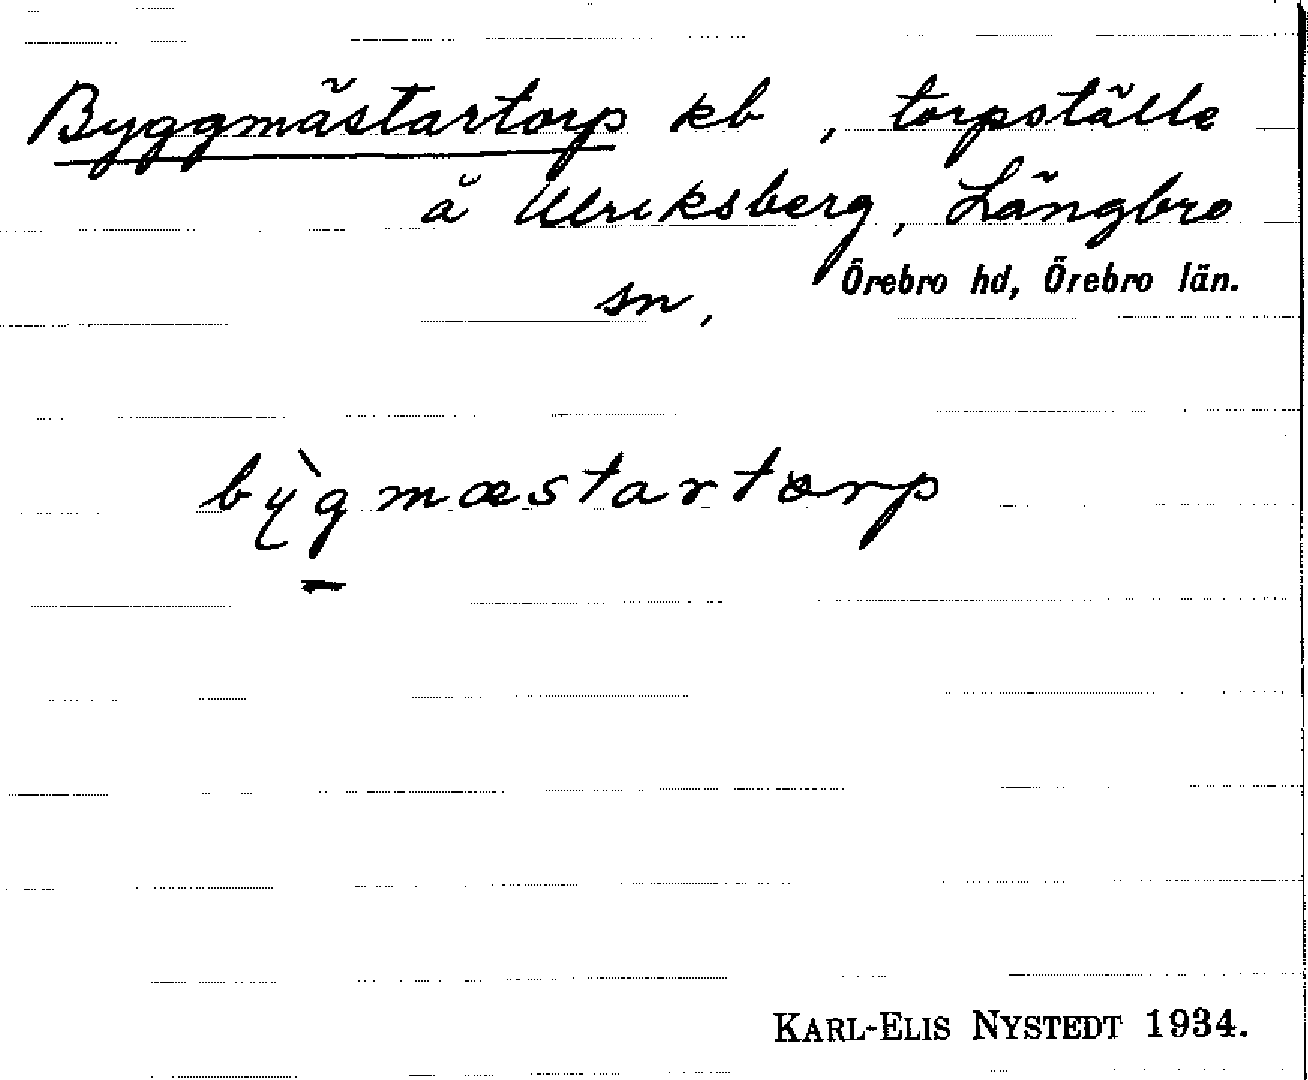 Byggmästartorp kb, torpställe
å Ulriksberg, Längbro
sn, Örebro hd, Örebro län.
by̍̀gmæstartorp
KARL-ELIS NYSTEDT 1934.